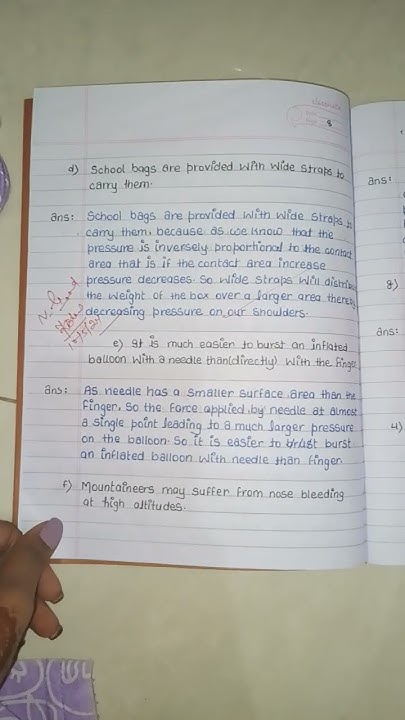 classmate
8
d) School bags are provided with wide straps to
carry them.
ans: School bags are provided with wide straps to
carry them, because as we know that the
pressure is inversely proportional to the contact
area that is if the contact area increase
pressure decreases. So wide straps will distribu
the weight of the box over a larger area thereby
decreasing pressure on our shoulders.
e) It is much easier to burst an inflated
balloon with a needle than(directly) with the finger
ans: As needle has a smaller surface area than the
finger. So the force applied by needle at almost
a single point leading to a much larger pressure
on the balloon. So it is easier to burst
an inflated balloon with needle than finger
f) Mountaineers may suffer from nose bleeding
at high altitudes.
V. Good
ans:
g)
ans:
4)